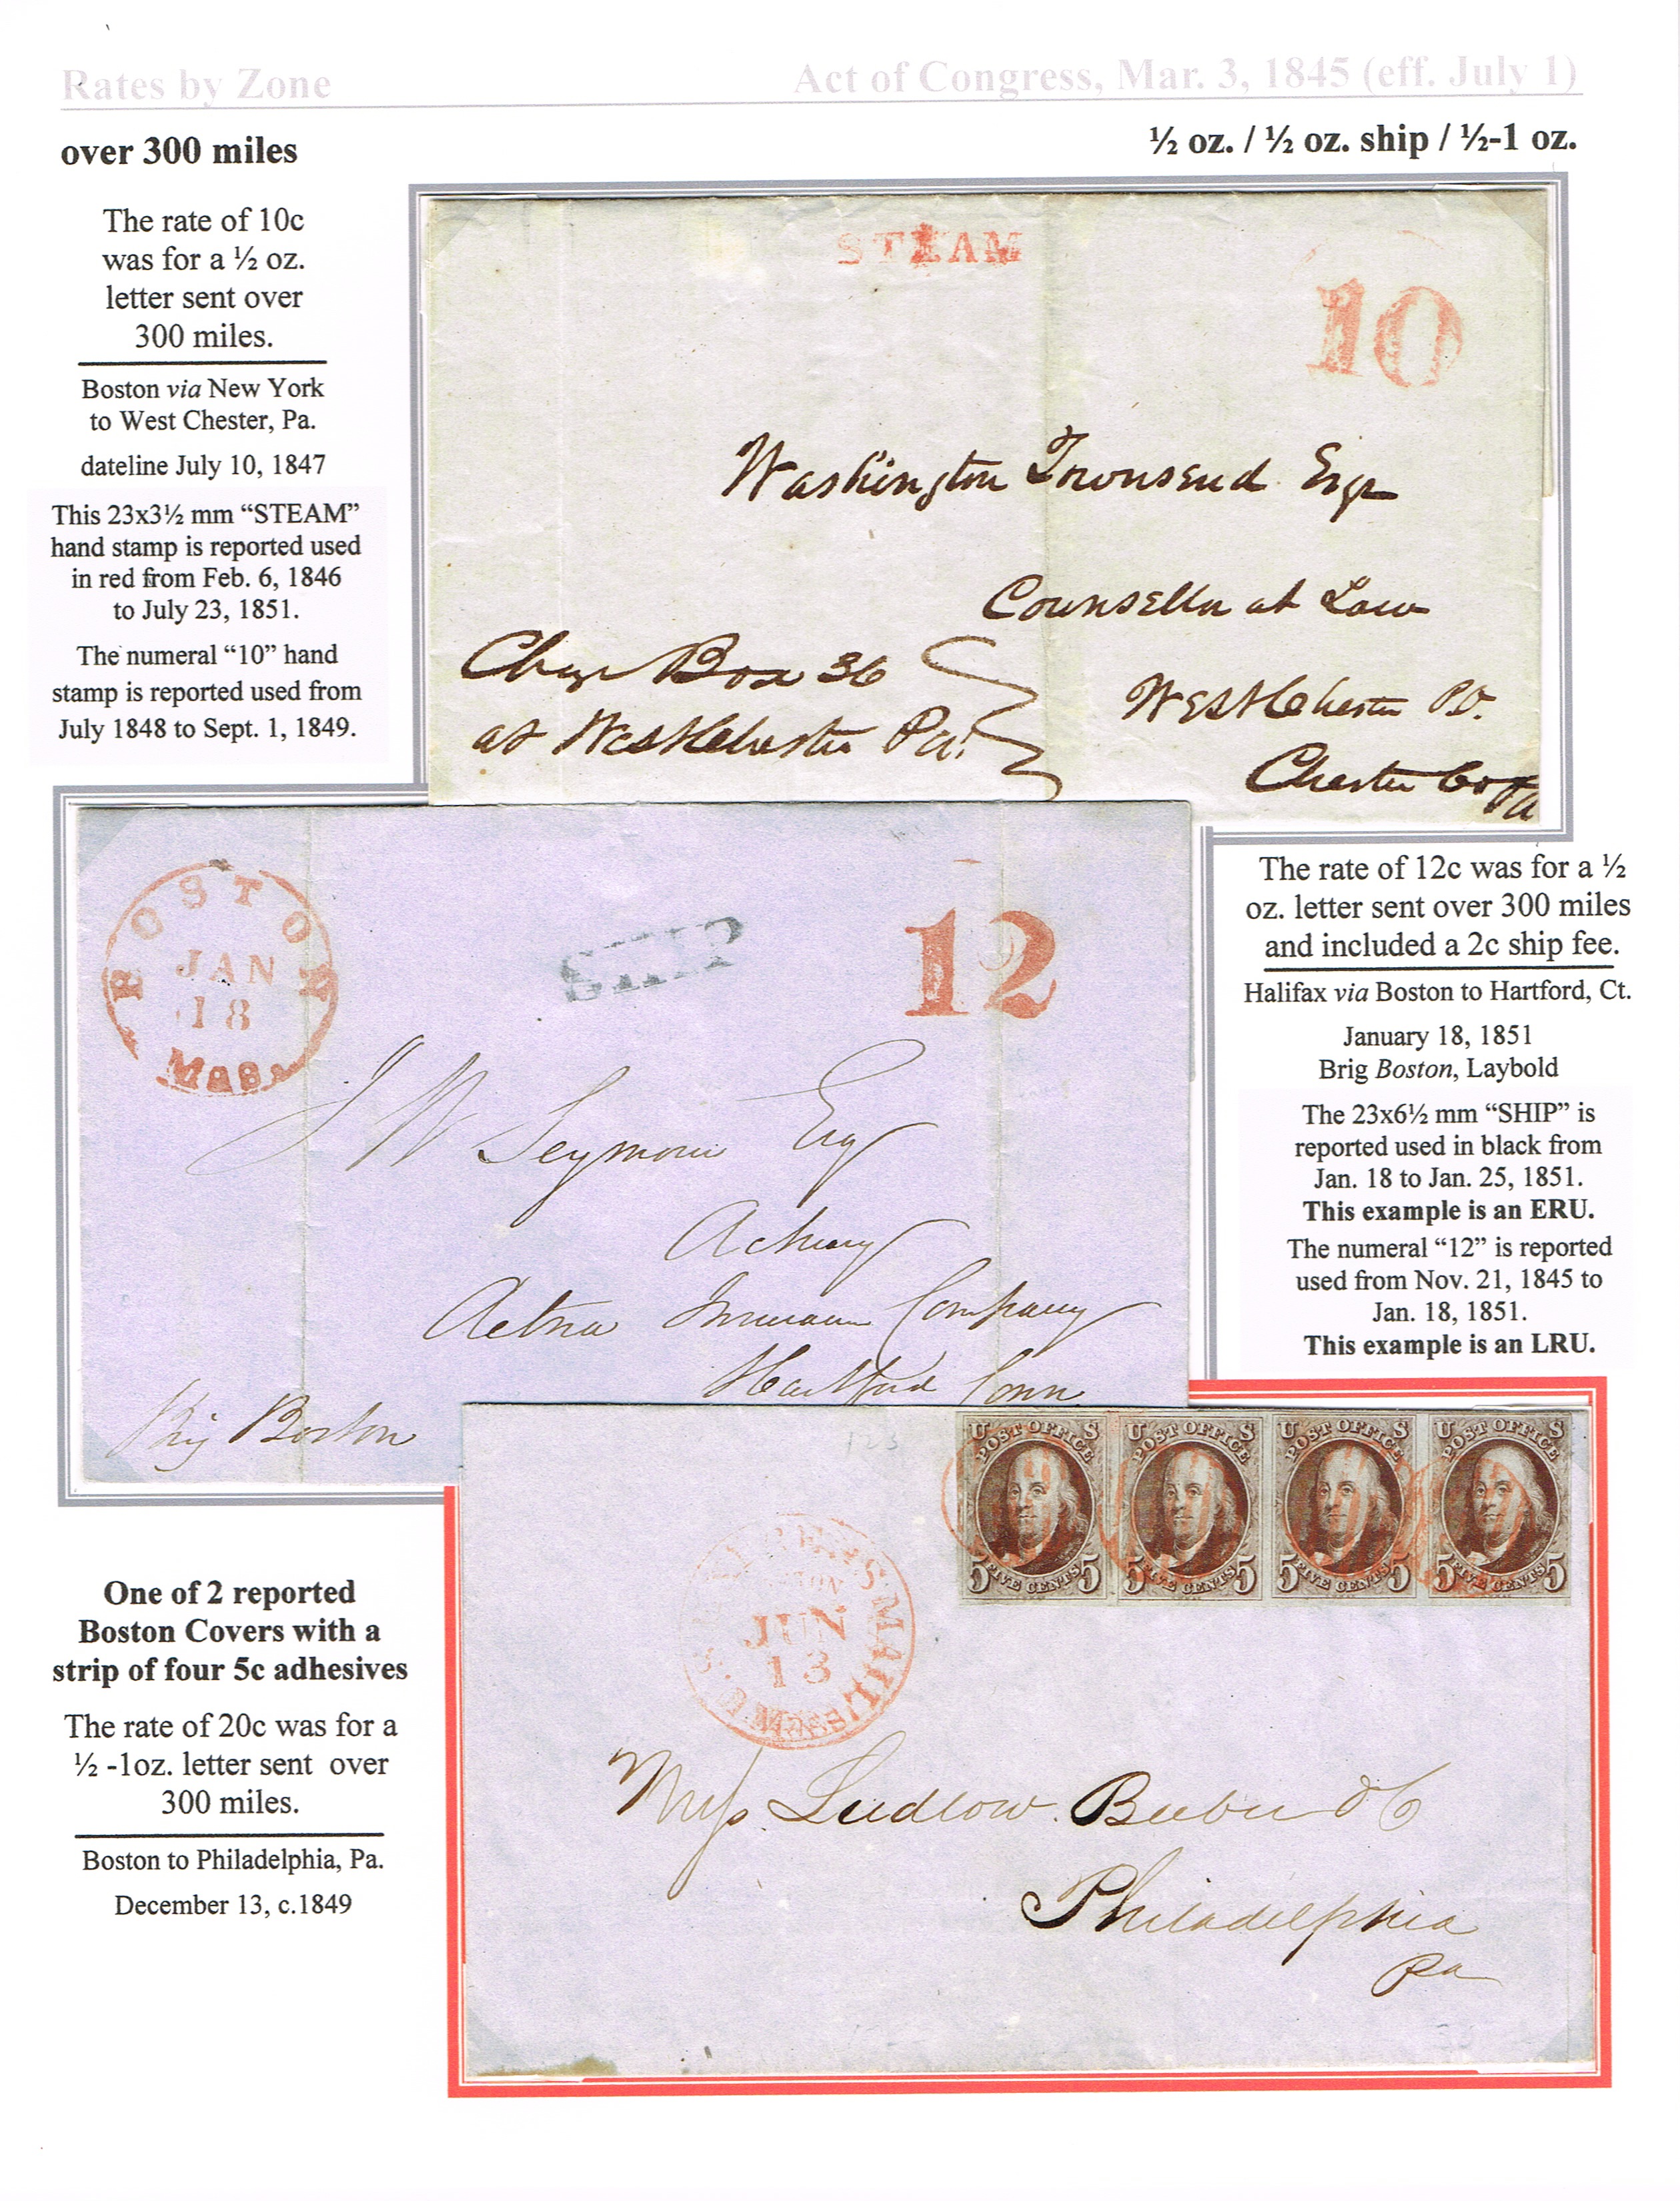 Rates by Zone
Act of Congress, Mar. 3, 1845 (eff. July 1)
over 300 miles
½ oz. / ½ oz. ship / ½-1 oz.
The rate of 10c
was for a ½ oz.
letter sent over
300 miles.
Boston via New York
to West Chester, Pa.
dateline July 10, 1847
This 23x3½ mm “STEAM”
hand stamp is reported used
in red from Feb. 6, 1846
to July 23, 1851.
The numeral “10” hand
stamp is reported used from
July 1848 to Sept. 1, 1849.
STEAM
10
Washington Townsend Esqr
Counsellor at Law
West Chester Pa.
Chester Co Pa
Box 36
at West Chester Pa.
BOSTON
JAN
18
MASS
SHIP
12
J W Seymour Esq
Aetna Insurance Company
Hartford Conn
Brig Boston
The rate of 12c was for a ½
oz. letter sent over 300 miles
and included a 2c ship fee.
Halifax via Boston to Hartford, Ct.
January 18, 1851
Brig Boston, Laybold
The 23x6½ mm “SHIP” is
reported used in black from
Jan. 18 to Jan. 25, 1851.
This example is an ERU.
The numeral “12” is reported
used from Nov. 21, 1845 to
Jan. 18, 1851.
This example is an LRU.
One of 2 reported
Boston Covers with a
strip of four 5c adhesives
The rate of 20c was for a
½ -1oz. letter sent over
300 miles.
Boston to Philadelphia, Pa.
December 13, c.1849
U S U S U S U S
POST OFFICE POST OFFICE POST OFFICE POST OFFICE
5 FIVE CENTS 5 5 FIVE CENTS 5 5 FIVE CENTS 5 5 FIVE CENTS 5
U.S. EXPRESS MAIL
JUN
13
MASS
Ludlow
Philadelphia
Pa